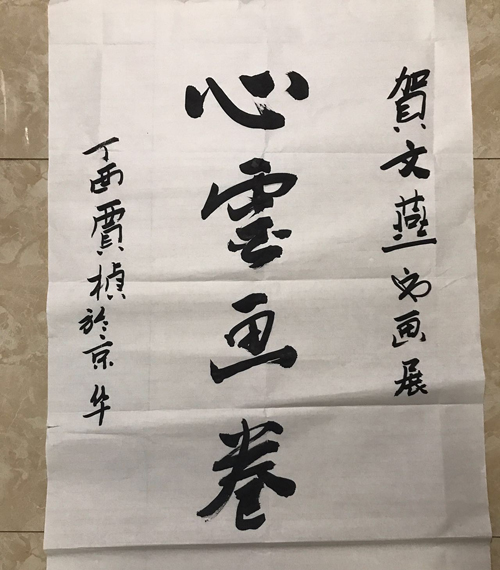 賀文燕书画展
心雲画卷
丁酉賈楨於京华